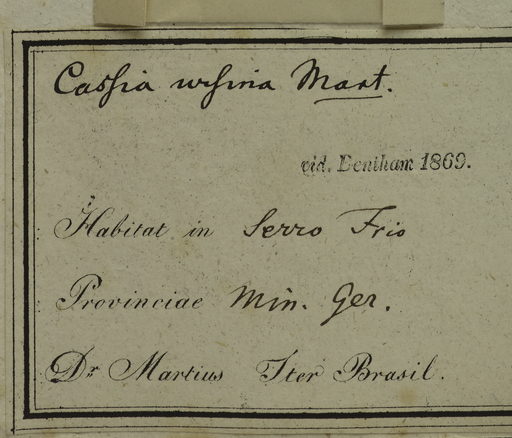 Cassia ursina Mart.
vid. Bentham 1869.
Habitat in Serro Frio
Provinciae Min. Ger.
Dr Martius Iter Brasil.